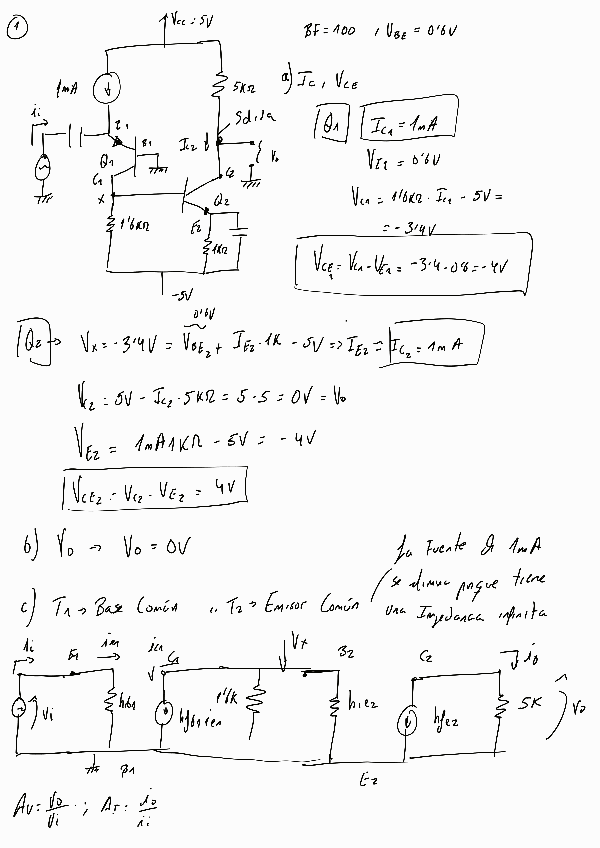 1
Vcc = 5V
BF = 100 , VBE = 0'6V
1mA
5KΩ
a) Ic , VCE
ii
Salida
Q1
IC1 = 1mA
E1
B1
IC2
Vo
Q1
C1
C2
VE1 = 0'6V
X
Q2
VC1 = 1'6KΩ · IC1 - 5V =
1'6KΩ
E2
1KΩ
= -3'4V
-5V
VCE1 = VC1 - VE1 = -3'4 - 0'6 = -4V
0'6V
Q2 → VX = -3'4V = VBE2 + IE2 · 1K - 5V => IE2 = IC2 = 1mA
VC2 = 5V - IC2 · 5KΩ = 5 - 5 = 0V = Vo
VE2 = 1mA 1KΩ - 5V = -4V
VCE2 = VC2 - VE2 = 4V
b) Vo → Vo = 0V
La Fuente de 1mA
se elimina porque tiene
una Impedancia infinita
c) T1 → Base Común , T2 → Emisor Común
ii
E1
C1
Vx
B2
C2
io
Vi
hib1
1'6K
hie2
hfe2
5K
Vo
B1
E2
Av = vo/vi ; AI = io/ii